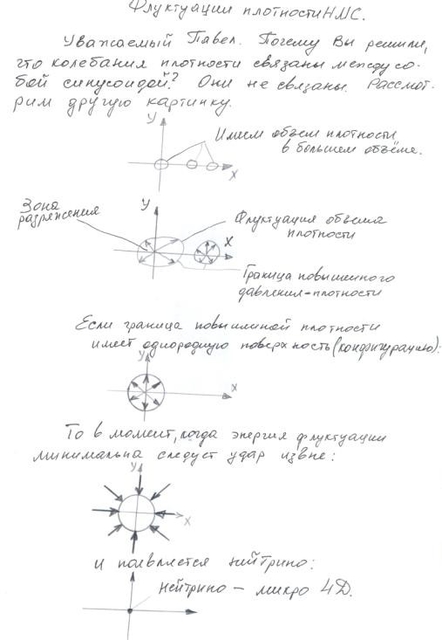 Флуктуации плотности НМС.
Уважаемый Павел. Почему Вы решили,
что колебания плотности связаны между со-
бой синусоидой? Они не связаны. Рассмот-
рим другую картинку.
Y
Имеем объем плотности
в большем объёме.
X
Зона
разряжения
Y
Флуктуация объема
плотности
X
Граница повышенного
давления-плотности
Если граница повышенной плотности
имеет однородную поверхность (конфигурацию):
Y
X
То в момент, когда энергия флуктуации
минимальна следует удар извне:
Y
X
и появляется нейтрино:
нейтрино – микро ЧД.